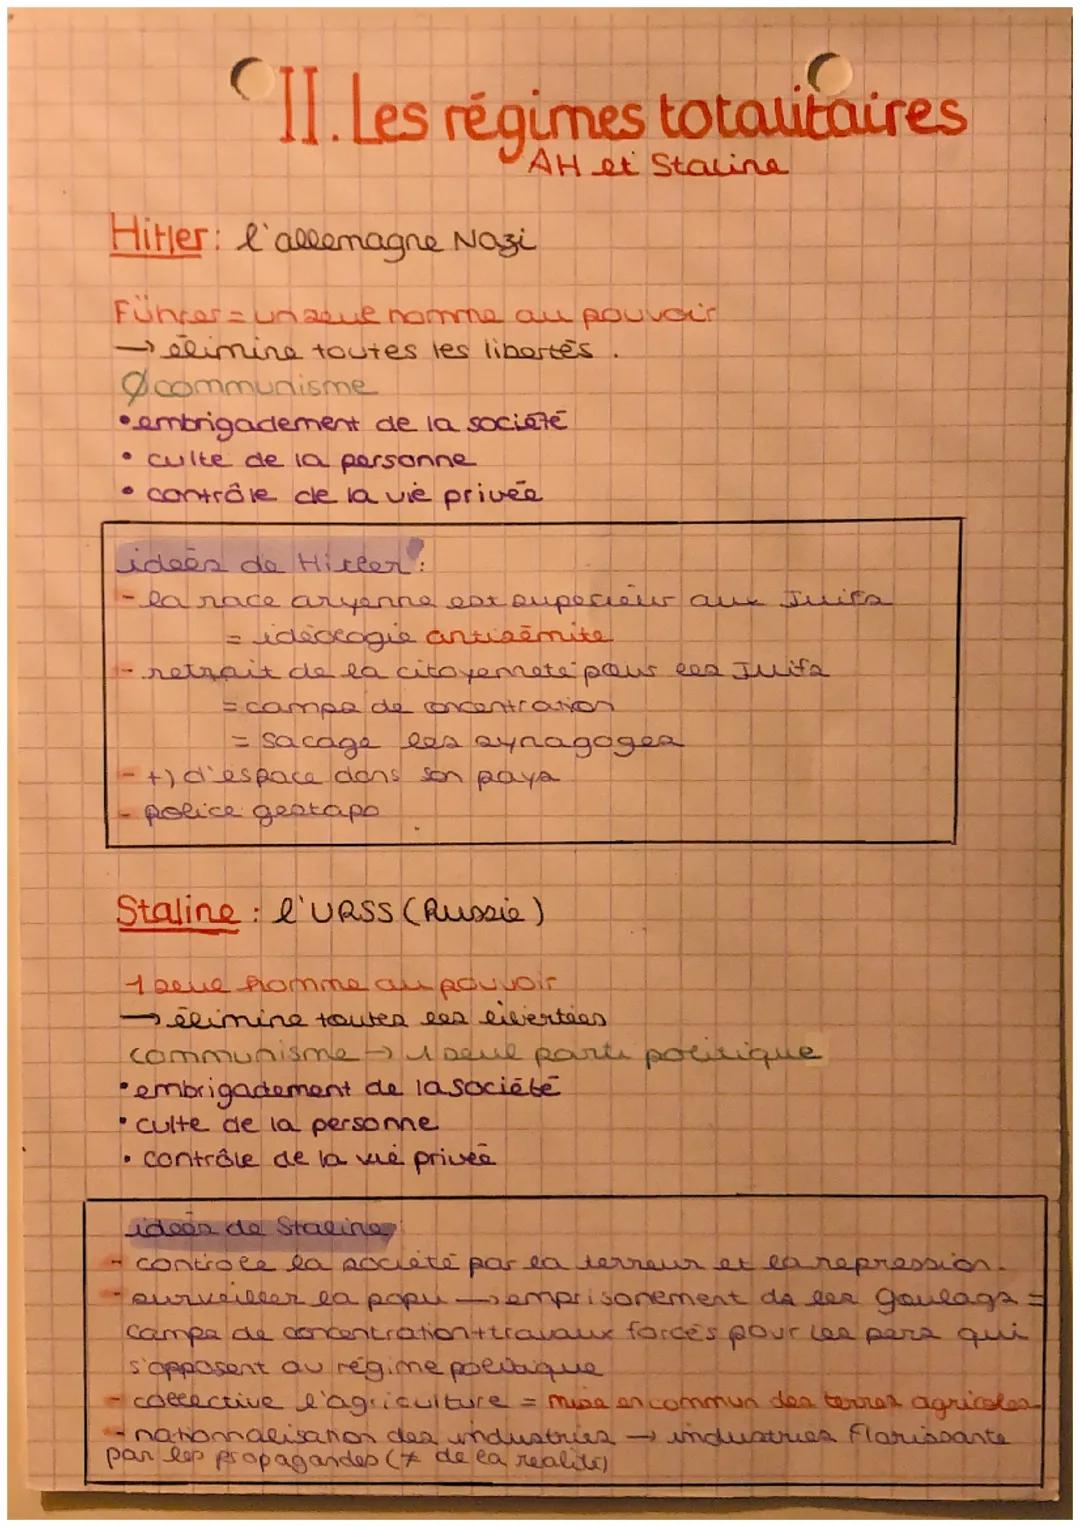 II. Les régimes totalitaires
AH et Staline
Hitler: l'allemagne Nazi
Führer = un seul homme au pouvoir
→ élimine toutes les libertés.
Ø communisme
• embrigadement de la société
• culte de la personne
• contrôle de la vie privée
ideés de Hitler:
- la race aryenne est supérieur aux Juifs
= idéologie antisémite
- retrait de la citoyenneté pour les Juifs
= camps de concentration
= sacage les synagoges
- +) d'espace dans son pays
- police gestapo
Staline: l'URSS (Russie)
1 seul homme au pouvoir
→ élimine toutes les libertées
communisme → 1 seul parti politique
• embrigadement de la société
• culte de la personne
• contrôle de la vie privée
ideés de Staline
- controle la société par la terreur et la repression.
- surveiller la popu → emprisonement ds les Goulags =
camps de concentration + travaux forcés pour les pers qui
s'opposent au régime politique
- collective l'agriculture = mise en commun des terres agricoles
- nationnalisation des industries → industries florissante
par les propagandes (≠ de la réalité)